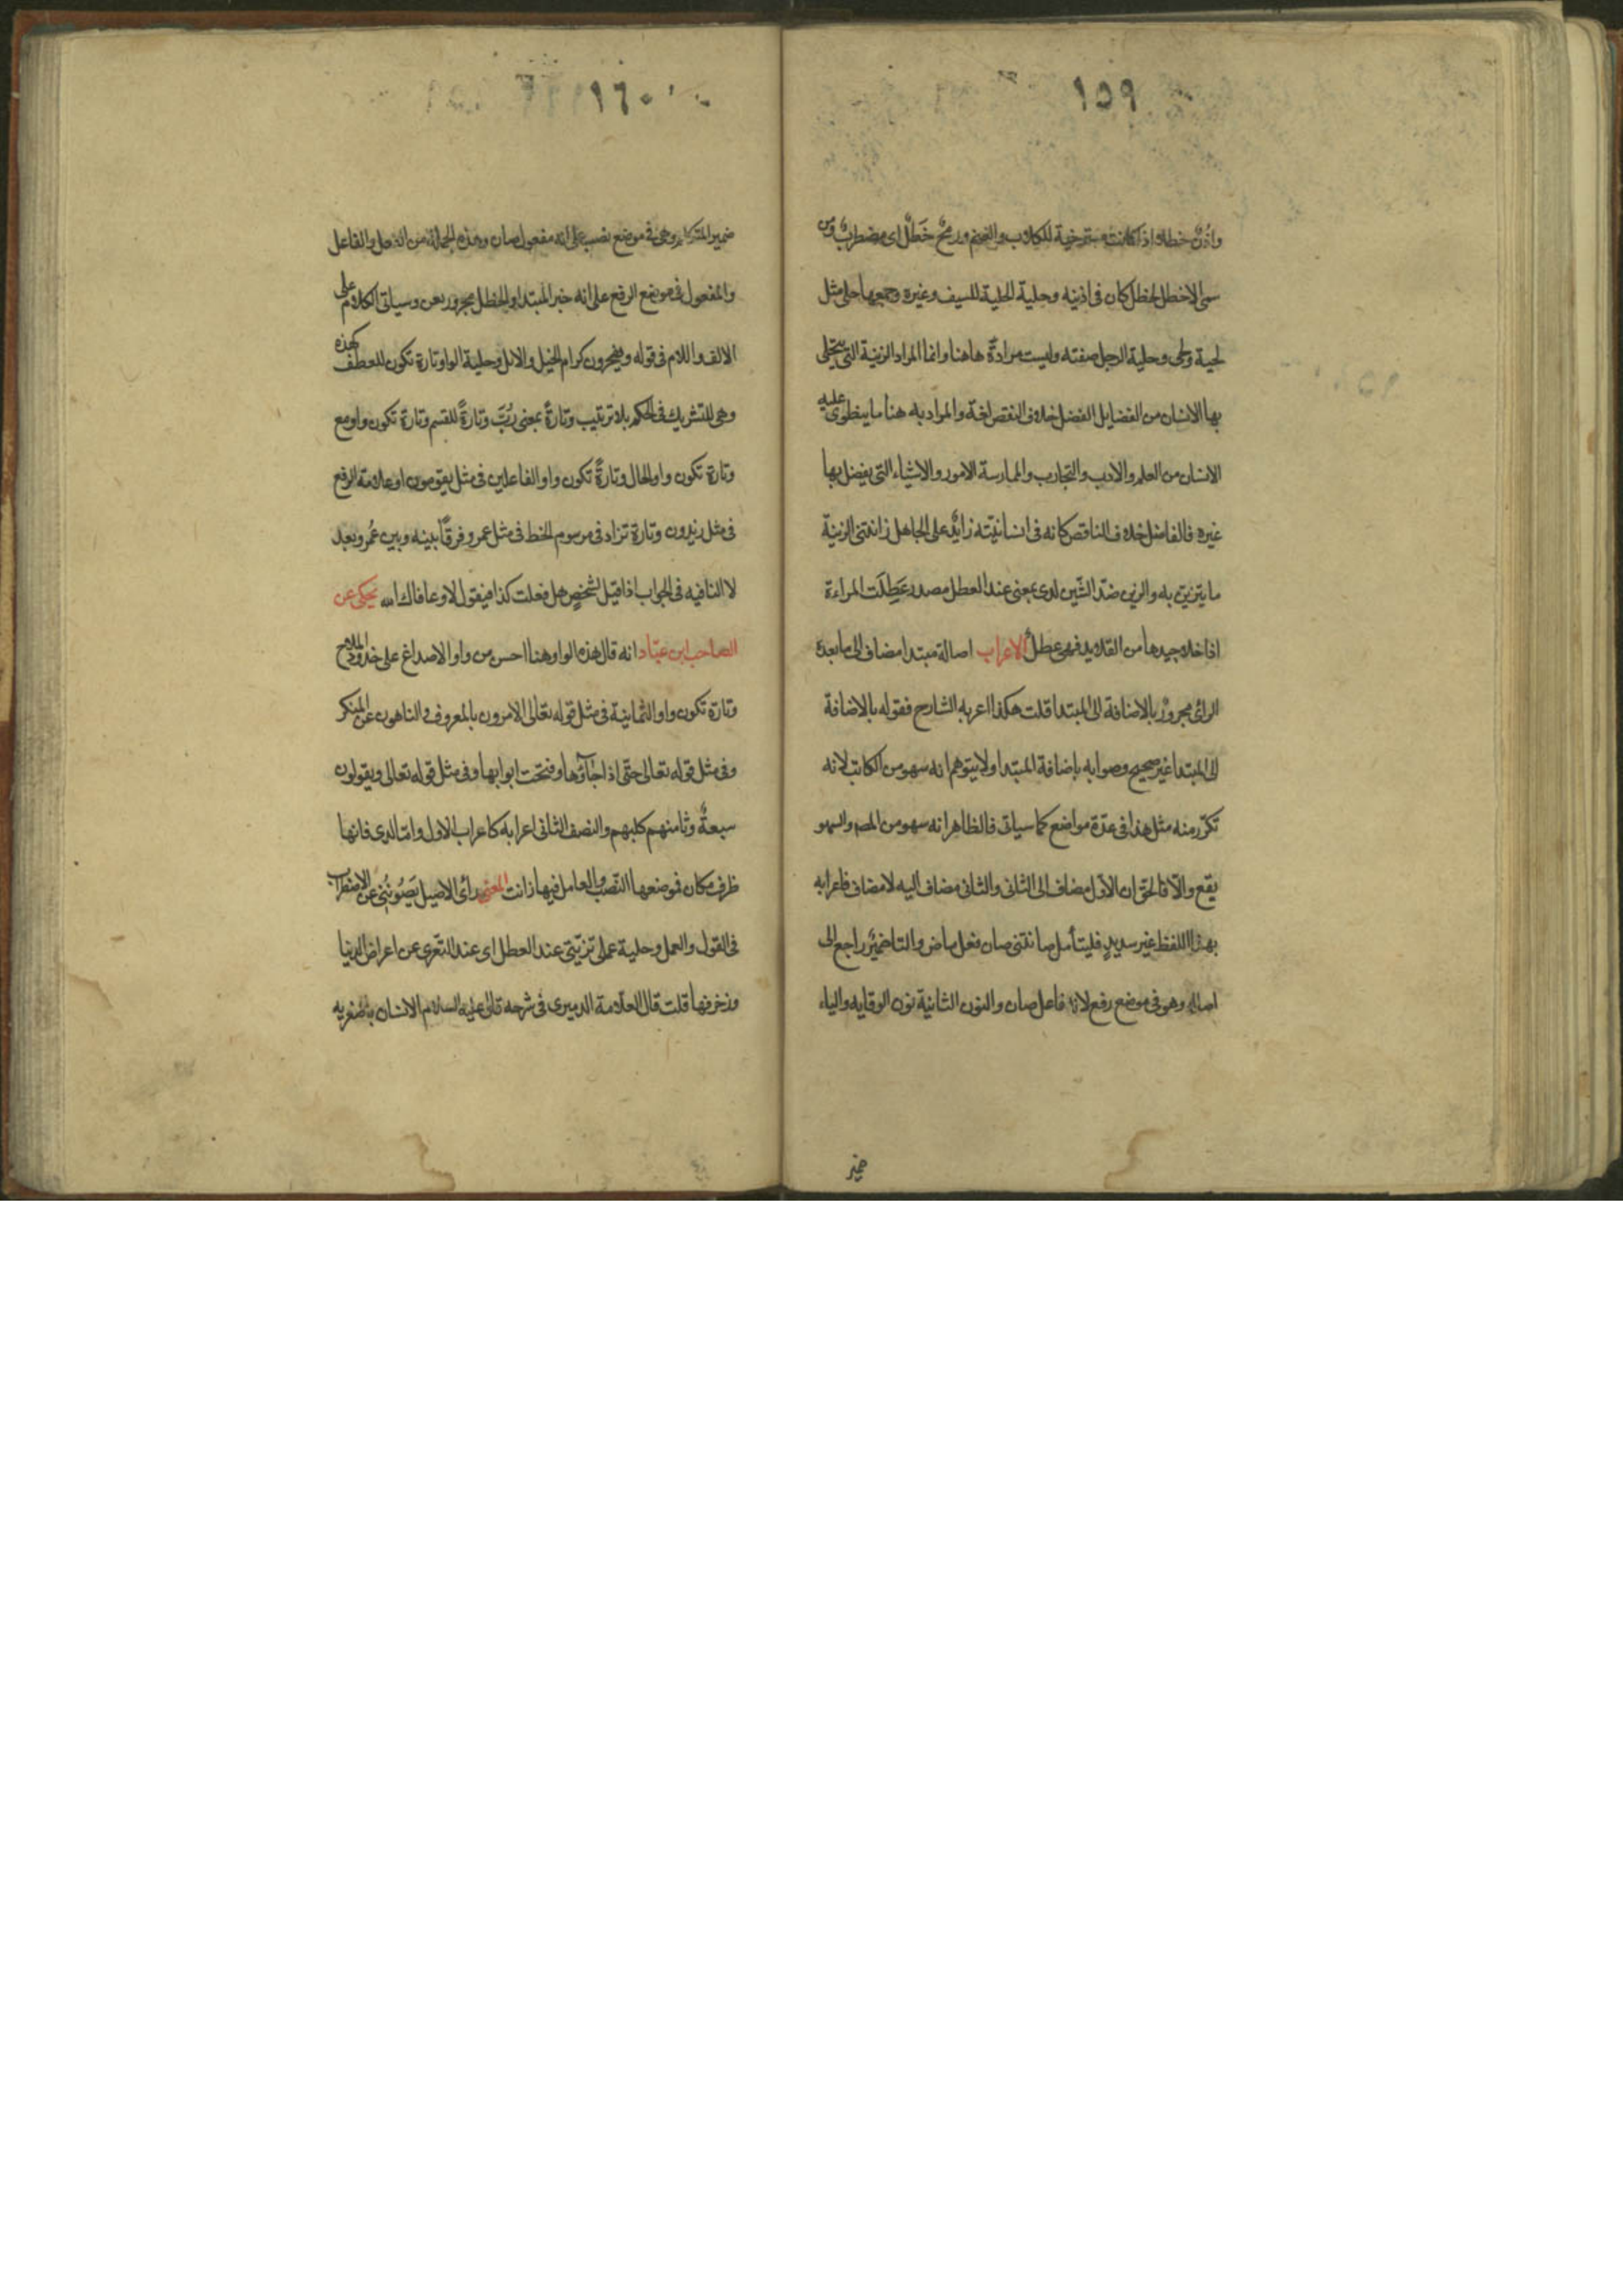 ١٥٩
واذن خطلاء اذا كانت مسترخية للكلاب والغنم ورمح خَطل اى مضطرب ومن
سمى الاخطل لخطل كان فى اذنيه وحلية الحلية للسيف وغيره وجمعها حلى مثل
لحية ولحى وحلية الرجل صفته وليست مرادةً هاهنا وانما المراد الزنية التى يتحلى
بها الانسان من الفضايل الفضل خلاف النقص لغة والمراد به هنا ما ينطوى عليه
الانسان من العلم والادب والتجارب والممارسة الامور والاشياء التى يفضل بها
غيره فالفاضل خلاف الناقص كانه فى انسانيّته زايدٌ على الجاهل زانتنى الزينة
ما يتزين به والزين ضدّ الشّين لدى بمعنى عند العطل مصدر عَطِلَت المراءة
اذا خلا جيدها من القلايد فهى عطلٌ الاعراب اصالة مبتدا مضاف الى ما بعده
الرائ مجرورٌ بالاضافة الى المبتدا قلت هكذا اعربه الشارح فقوله بالاضافة
الى المبتدا غير صحيح وصوابه باضافة المبتدا ولا يتوهم انه سهو من الكاتب لانه
تكرّر منه مثل هذا فى عدّة مواضع كما سياتى فالظاهر انه سهو من المصـ والسهو
يقع والّا فالحق ان الاوّل مضاف الى الثانى والثانى مضاف اليه لا مضاف فاعرابه
بهذا اللفظ غير سديدٍ فليتأمل صانتنى صان فعل ماض والتا ضميرٌ راجع الى
اصالة وهو فى موضع رفع لانه فاعل صان والنون الثانية نون الوقايه والياء
ضمير
١٦٠
ضمير المتكلم وهى فى موضع نصب على انه مفعول صان وهذه الجملة من الفعل والفاعل
والمفعول فى موضع الرفع على انه خبر المبتدا والخطل مجرور بعن وسياتى الكلام على
الالف واللام فى قوله وينحرون كرام الخيل والابل وحلية الواو تارة تكون للعطف كهذه
وهى للتشريك فى الحكم بلا ترتيب وتارةً بمعنى رُبّ وتارةً للقسم وتارة تكون واو مع
وتارة تكون واو الحال وتارةً تكون واو الفاعلين فى مثل يقومون او علامة الرفع
فى مثل زيدون وتارة تزاد فى مرسوم الخط فى مثل عمرو فرقًا بينه وبين عُمر وبعد
لا النافيه فى الجواب اذا قيل لشخصٍ هل فعلت كذا فيقول لا وعافاك الله يحكى عن
الصاحب ابن عبّاد انه قال هذه الواو هنا احسن من واو الاصداغ على خدود الملاح
وتارة تكون واو الثمانية فى مثل قوله تعالى الامرون بالمعروف والناهون عن المنكر
وفى مثل قوله تعالى حتّى اذا جاؤها وفتحت ابوابها وفى مثل قوله تعالى ويقولون
سبعةٌ وثامنهم كلبهم والنصف الثانى اعرابه كاعراب الاول وامّا لدى فانها
ظرف مكان فموضعها النّصب والعامل فيها زانت المعنى رأى الاصيل يَصُونُنِى عن الاضطراب
فى القول والعمل وحلية عملى تزيّننى عند العطل اى عند التعرى عن اعراض الدنيا
وزخرفها قلت قال العلّامة الدميرى فى شرحه قال عليه السلام الانسان باصغريه